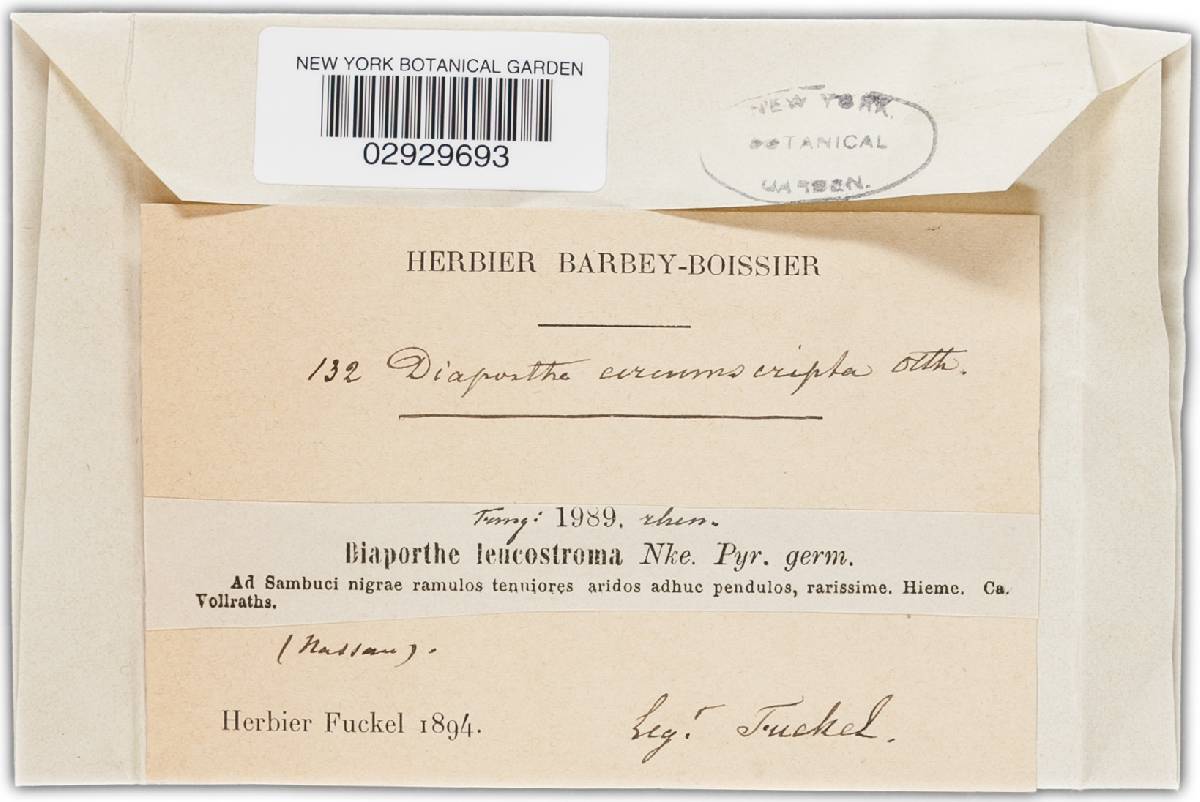 NEW YORK BOTANICAL GARDEN
02929693
NEW YORK
BOTANICAL
GARDEN.
HERBIER BARBEY-BOISSIER
132 Diaporthe circumscripta Otth.
Fungi 1989. rhen.
Diaporthe leucostroma Nke. Pyr. germ.
Ad Sambuci nigrae ramulos tenuiores aridos adhuc pendulos, rarissime. Hieme. Ca.
Vollraths.
(Nassau).
Herbier Fuckel 1894.
Leg.t Fuckel.